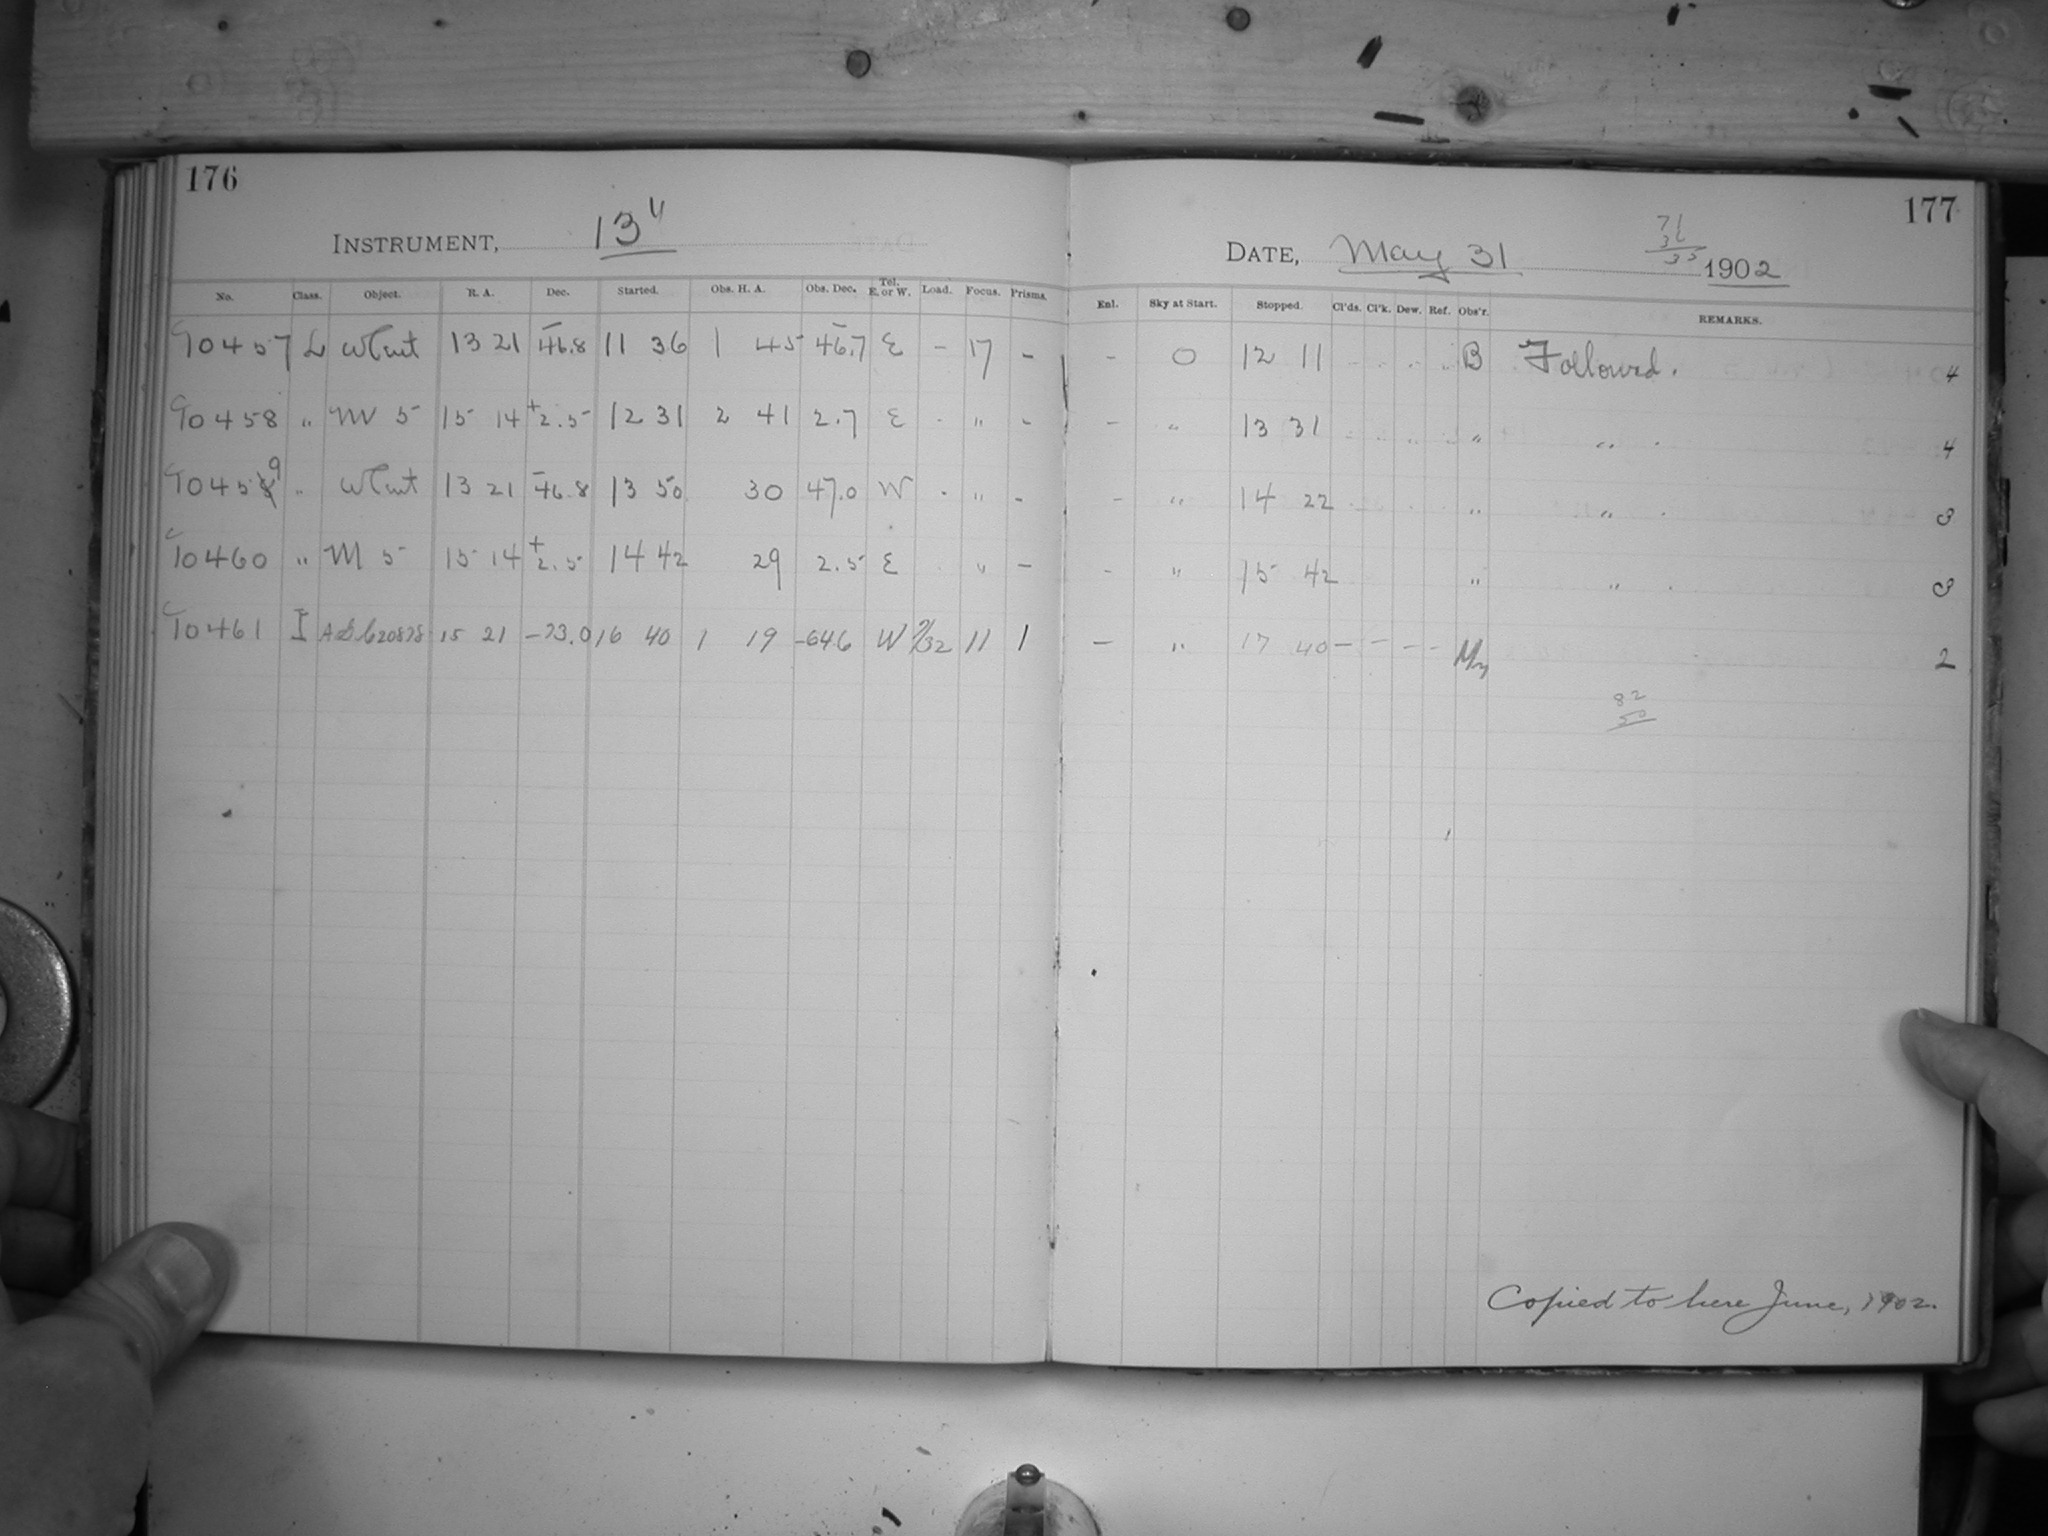 176
INSTRUMENT, 13"
No. Class. Object. R. A. Dec. Started. Obs. H. A. Obs. Dec. Tel. E. or W. Load. Focus. Prisms.
10457 L ω Cent 13 21 -46.8 11 36 1 45 -46.7 E - 17 -
10458 " M 5 15 14 +2.5 12 31 2 41 2.7 E - " -
10459 " ω Cent 13 21 -46.8 13 50 30 47.0 W - " -
10460 " M 5 15 14 +2.5 14 42 29 2.5 E " -
10461 I 15 21 -73.0 16 40 1 19 -646 W 9/32 11 1
177
DATE, May 31 1902
Enl. Sky at Start. Stopped. Cl'ds. Cl'k. Dew. Ref. Obs'r. REMARKS.
- 0 12 11 B Followed. 4
- " 13 31 " " 4
- " 14 22 " " 3
- " 15 42 " " 3
- " 17 40 - - - - 2
82
50
Copied to here June, 1902.